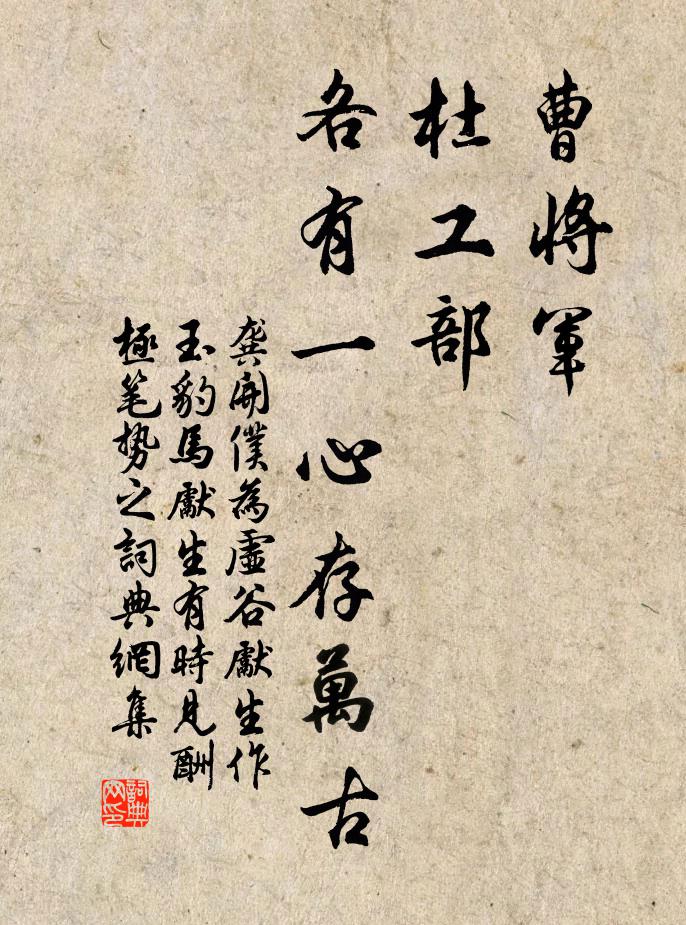 曹將軍
杜工部
各有一心存萬古
龔開僕為虛谷獻生作
玉豹馬獻生有時見酬
極笔勢之詞典網集
詞典
网印